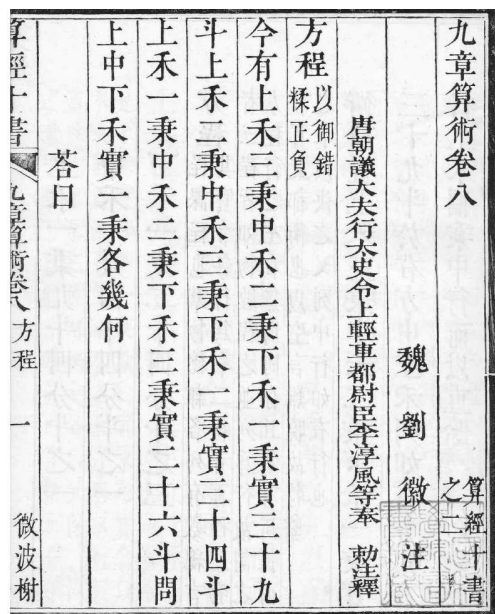 九章算術卷八
算經十書
之
魏劉徽注
唐朝議大夫行太史令上輕車都尉臣李淳風等奉 勅注釋
方程以御錯糅正負
今有上禾三秉中禾 秉下禾 秉實三十九
斗上禾二秉中禾三秉下禾 秉實三十四斗
上禾一秉中禾二秉下禾 秉實 十六斗問
上中下禾實 秉各幾何
荅曰
算經十書 九章算術卷八 方程 一 微波榭